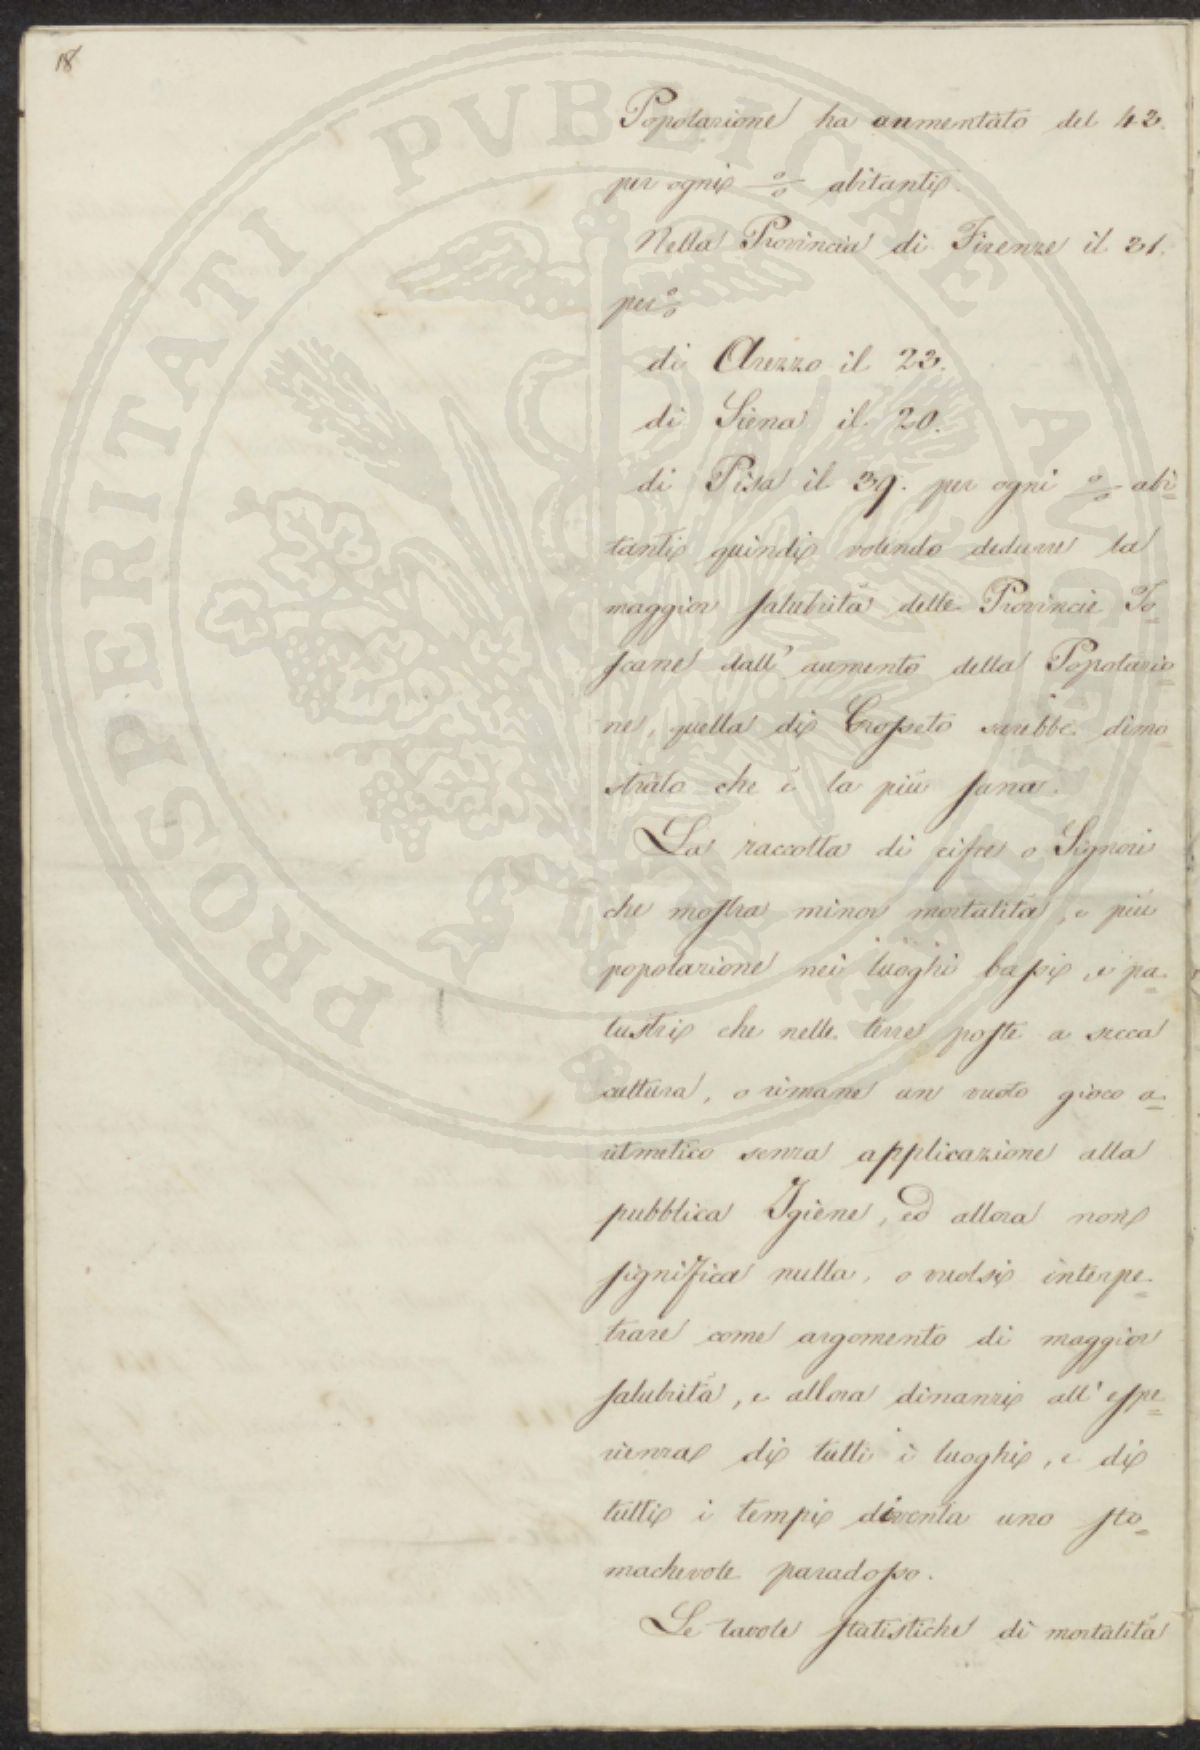 18
Popolazione ha aumentato del 43.
per ogni % abitanti.
Nella Provincia di Firenze il 31.
per %
di Arezzo il 23.
di Siena il 20.
di Pisa il 39. per ogni % abi=
tanti quindi volendo dedurre la
maggior salubrità delle Provincie To=
scane dall' aumento della Popolazio=
ne, quella di Grosseto sarebbe dimo=
strato che è la più sana.
La raccolta di cifre o Signori
che mostra minor mortalità, e più
popolazione nei luoghi bassi, e pa=
lustri che nelle terre poste a secca
cultura, o rimane un vuoto gioco a=
ritmetico senza applicazione alla
pubblica Igiene, ed allora non
significa nulla, o vuolsi interpe=
trare come argomento di maggior
salubrità, e allora dinanzi all' espe=
rienza di tutti i luoghi, e di
tutti i tempi diventa uno sto=
machevole paradosso.
Le tavole statistiche di mortalità
PROSPERITATI PVBLICAE AVGENDAE